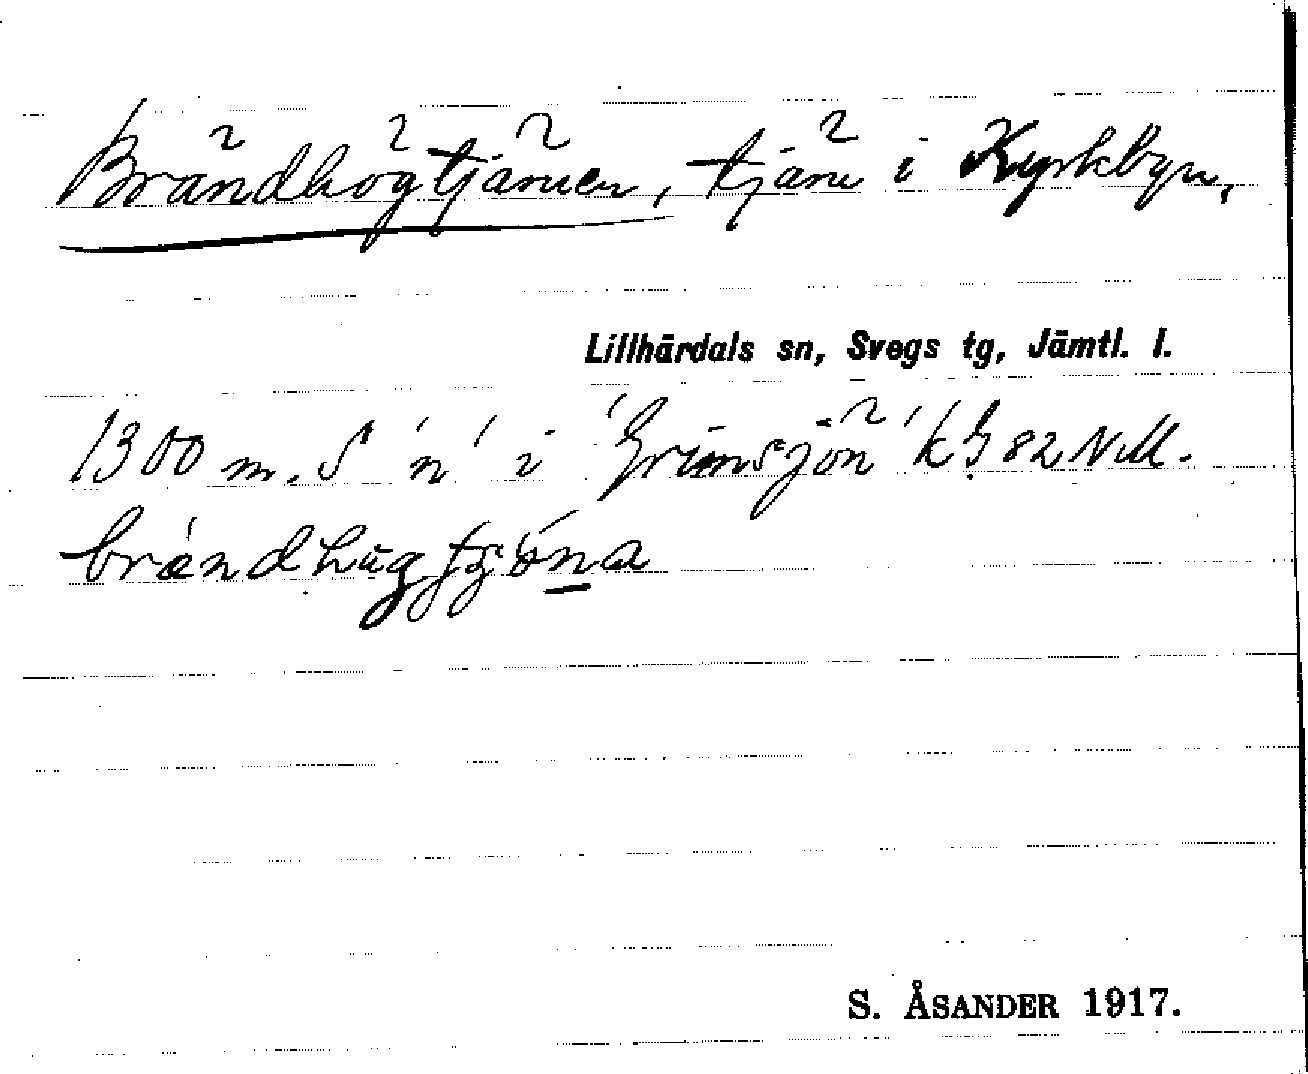 Brändhögtjärnen, tjärn i Kyrkbyn,
Lillhärdals sn, Svegs tg, Jämtl. l.
1300 m. S 'n' i 'Grimsjön' k G 82 NM.
brándhūg tjöna
S. ÅSANDER 1917.